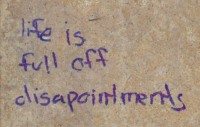 life is
full off
disapointments